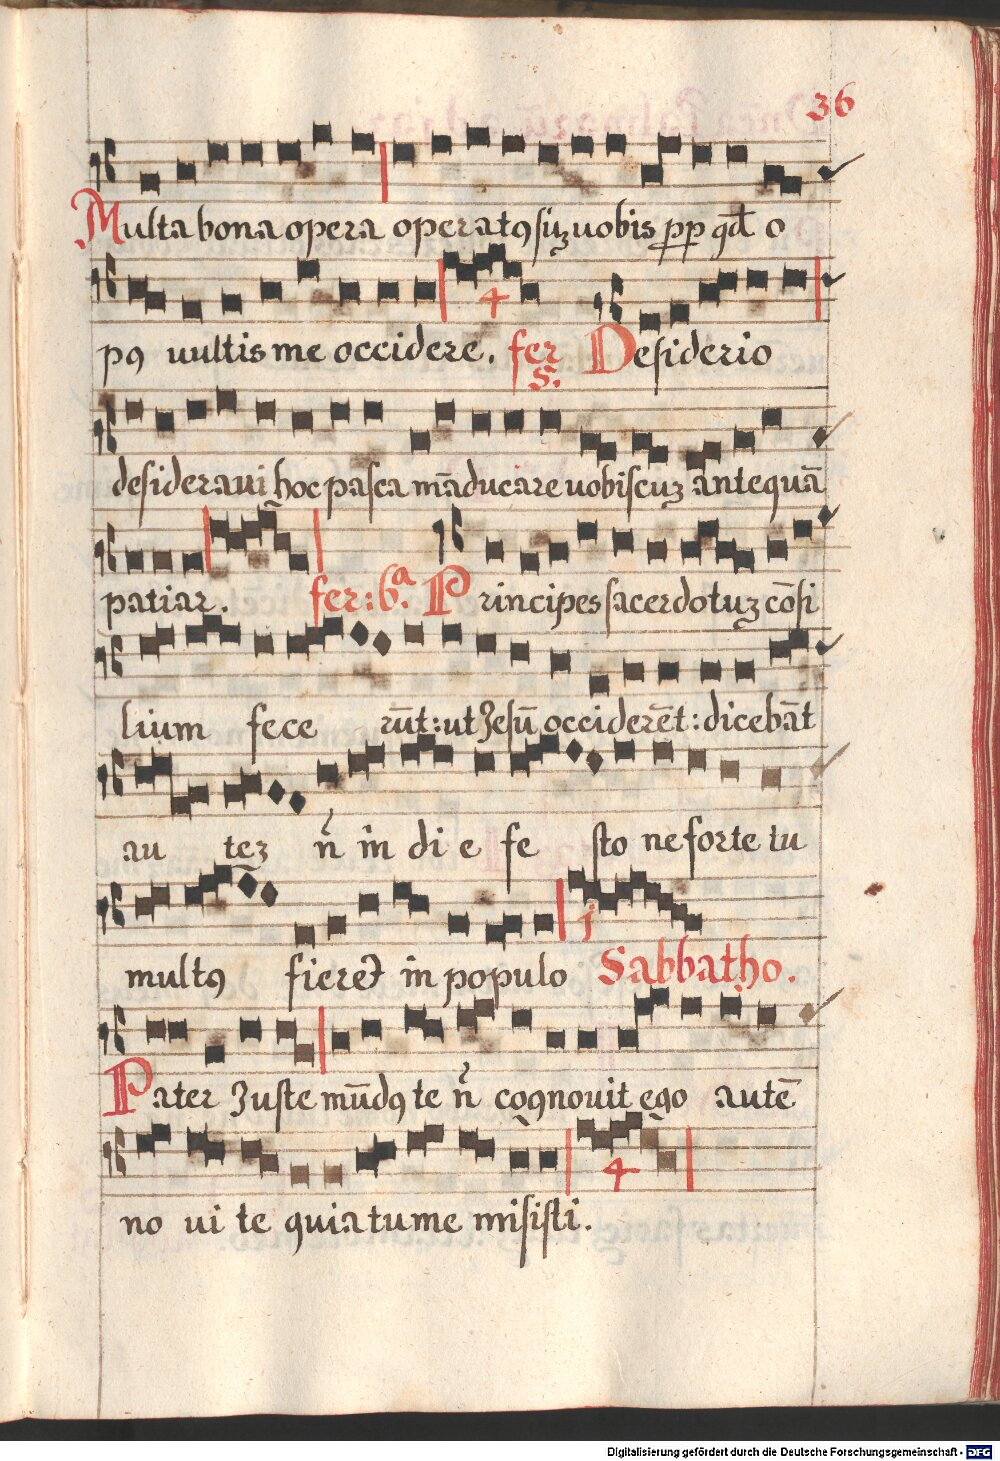 36
Multa bona opera operatꝰ sūꝫ uobis ꝓp qđ o
pꝰ uultis me occidere. fer 5. Desiderio
desideraui hoc pasca māducare uobiscuꝫ antequā
patiar. fer: 6.ª Principes sacerdotuꝫ cōsi
lium fece rūt: ut Jesū occiderēt: dicebāt
au teꝫ n̄ in di e fe sto ne forte tu
multꝰ fieret in populo Sabbatho.
Pater Juste mūdꝰ te n̄ cognouit ego autē
no ui te quia tu me misisti.
Digitalisierung gefördert durch die Deutsche Forschungsgemeinschaft - DFG